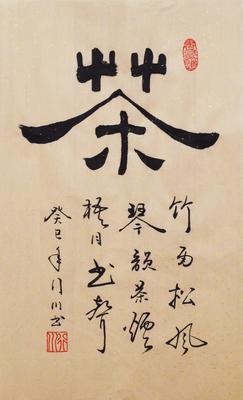 茶
竹雨松風
琴韻茶煙
梧月書聲
癸巳年 川書